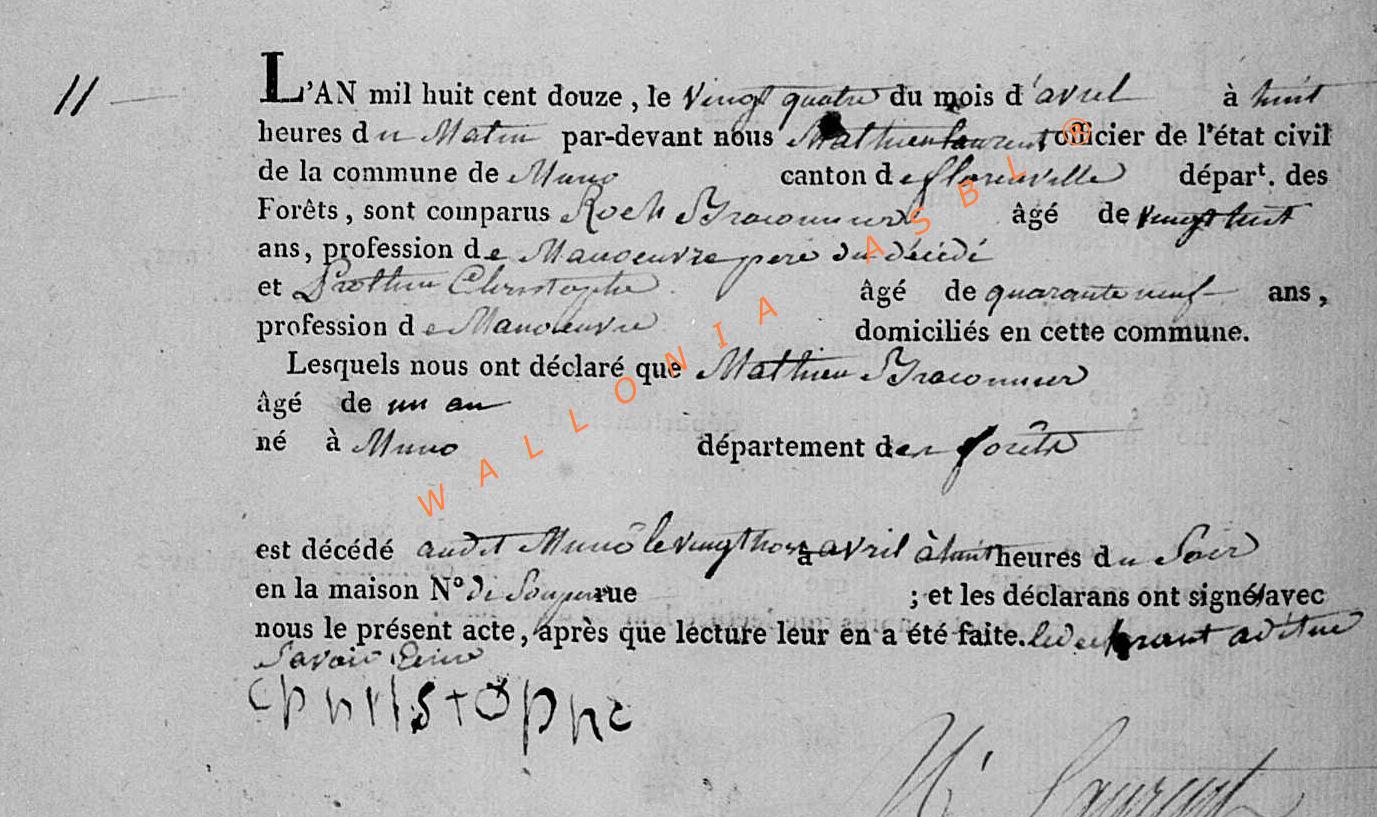 11
L'AN mil huit cent douze, le vingt quatre du mois d'avril à huit
heures du Matin par-devant nous Mathieu Laurent officier de l'état civil
de la commune de Muno canton de florenville départ. des
Forêts, sont comparus Roch Braconnier âgé de vingt huit
ans, profession de Manoeuvre pere du décédé
et Christophe âgé de quarante neuf ans,
profession de Manoeuvre domiciliés en cette commune.
Lesquels nous ont déclaré que Mathieu Braconnier
âgé de un an
né à Muno département des forêts
est décédé audit Muno le vingt trois avril à huit heures du Soir
en la maison N° de rue ; et les déclarans ont signé avec
nous le présent acte, après que lecture leur en a été faite.
Savoir
christophe
Laurent
WALLONIA ASBL ®